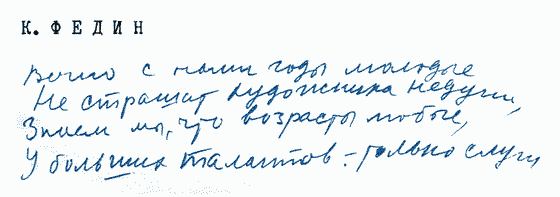 К. ФЕДИН
Вечно с нами годы молодые
Не страшат художника недуги,
Знаем мы, что возрасты любые,
У больших талантов – только слуги